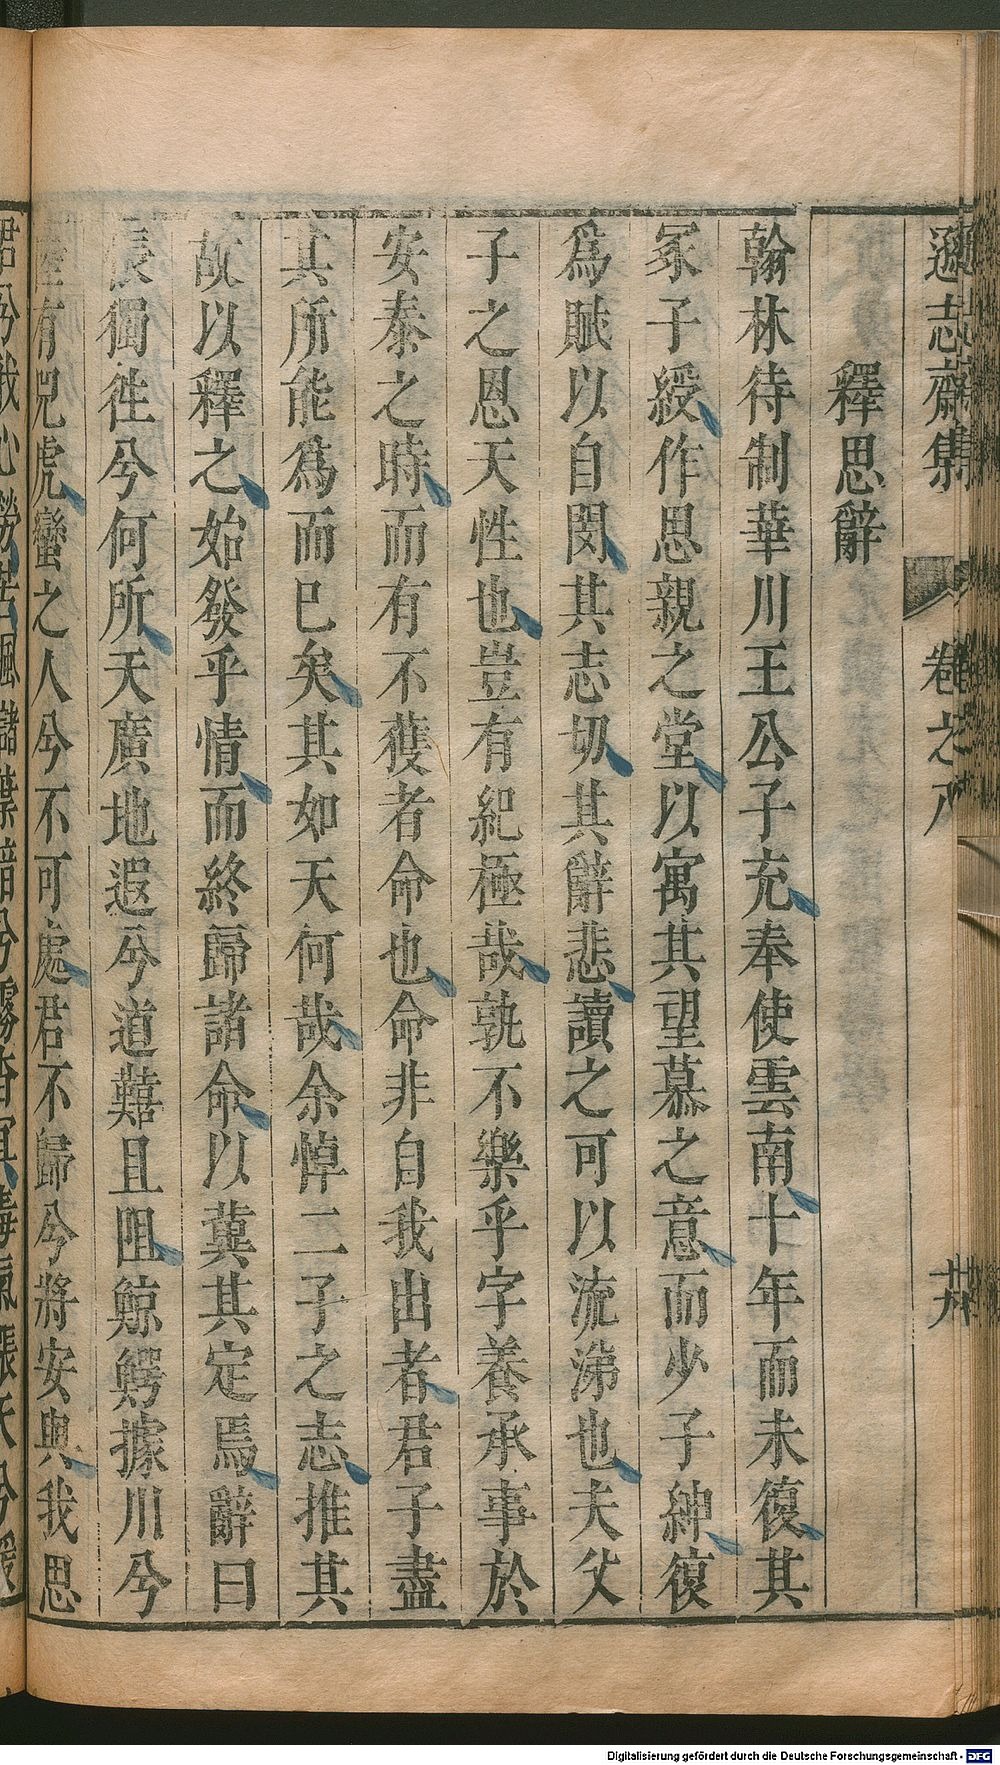 遜志齋集
卷之八
釋思辭
翰林待制華川王公子充奉使雲南十年而未復其
冢子綬作思親之堂以寓其望慕之意而少子紳復
爲賦以自閔其志切其辭悲讀之可以流涕也夫父
子之恩天性也豈有紀極哉孰不樂乎字養承事於
安泰之時而有不獲者命也命非自我出者君子盡
其所能爲而已矣其如天何哉余悼二子之志推其
故以釋之始發乎情而終歸諸命以冀其定焉辭曰
長獨徃兮何所天廣地遐兮道難且阻鯨鰐據川兮
陸有兕虎蠻之人兮不可處君不歸兮將安與我思
君兮我心勞
兮
Digitalisierung gefördert durch die Deutsche Forschungsgemeinschaft - DFG